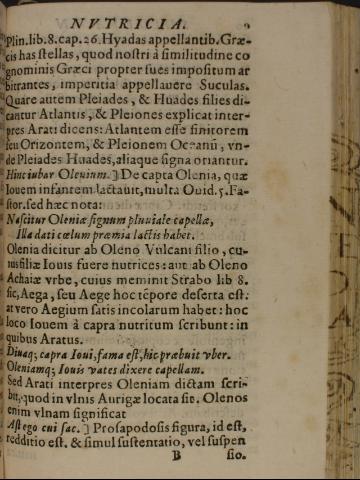 NVTRICIA.
Plin.lib.8.cap.26.Hyadas appellantib.Græ-
cis has stellas, quod nostri à similitudine co
gnominis Græci propter sues impositum ar
bitrantes, imperitia appellauere Suculas.
Quare autem Pleiades, & Huades filies di-
cantur Atlantis, & Pleiones explicat inter-
pres Arati dicens: Atlantem esse finitorem
seu Orizontem, & Pleionem Oceanū, vn-
de Pleiades Huades, aliaque signa oriantur.
Hinc iubar Olenium.] De capta Olenia, quæ
Iouem infantem lactauit, multa Ouid.5.Fa-
stor.sed hæc nota:
Nascitur Oleniæ signum pluuiale capellæ,
Illa dati cœlum præmia lactis habet.
Olenia dicitur ab Oleno Vulcani filio, cu-
ius filiæ Iouis fuere nutrices: aut ab Oleno
Achaiæ vrbe, cuius meminit Strabo lib 8.
sic, Aega, seu Aege hoc tēpore deserta est.
at vero Aegium satis incolarum habet: hoc
loco Iouem à capra nutritum scribunt: in
quibus Aratus.
Diuaq; capra Ioui, fama est, hic præbuit vber.
Oleniamq; Iouis vates dixere capellam.
Sed Arati interpres Oleniam dictam scri-
bit, quod in vlnis Aurigæ locata sit. Olenos
enim vlnam significat
Ast ego cui sac.] Prosapodosis figura, id est,
redditio est. & simul sustentatio, vel suspen
B sio.